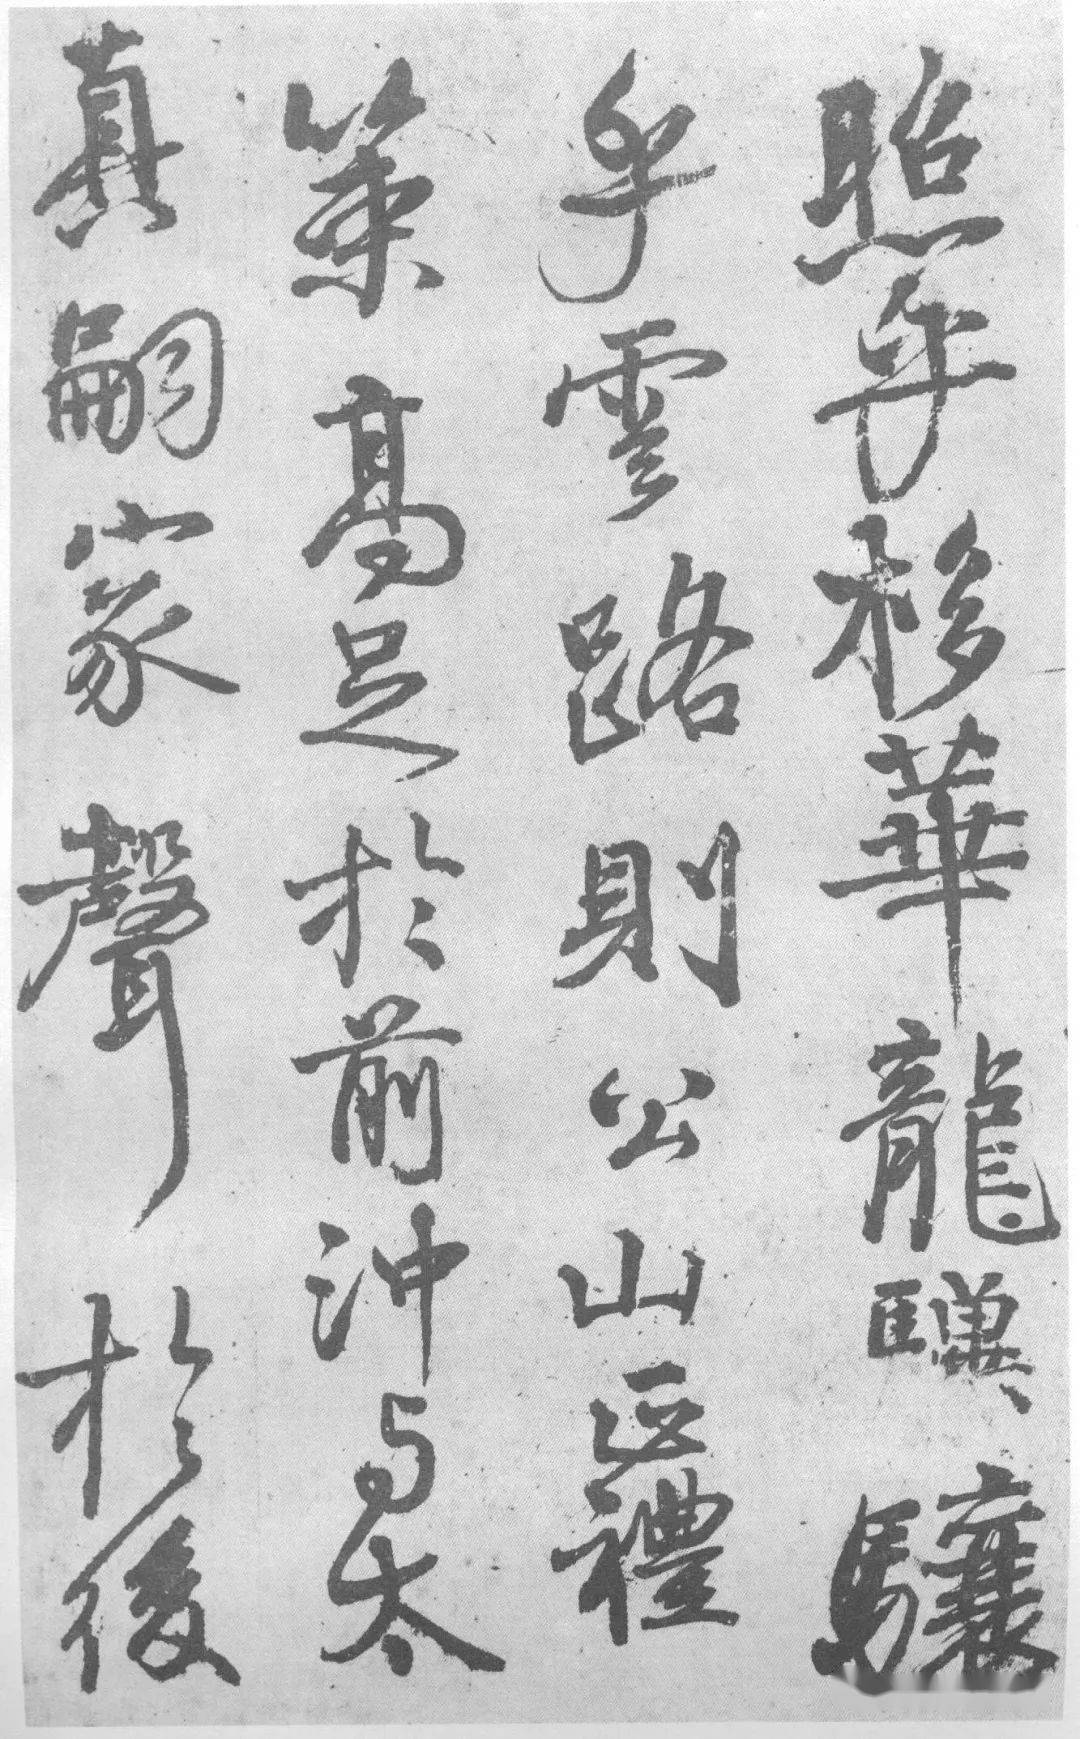 照乎移華龍驥驤
乎雲路則公山正禮
策高足於前沖与太
真嗣家聲於後